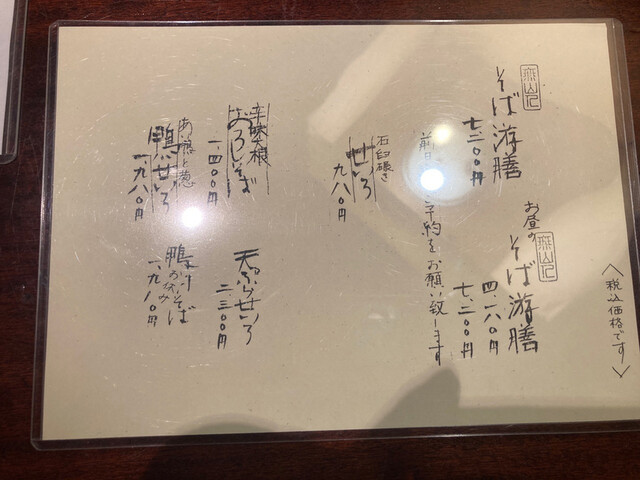 〈税込価格です〉
そば游膳
七、二〇〇円
お昼の
そば游膳
四、一八〇円
七、二〇〇円
予約をお願い致します
石臼碾き
せいろ
九八〇円
辛味大根
おろしそば
一、四〇〇円
天ぷらせいろ
二、三〇〇円
あい鴨と葱
鴨せいろ
一、九八〇円
鴨汁そば
お休み
一、九八〇円